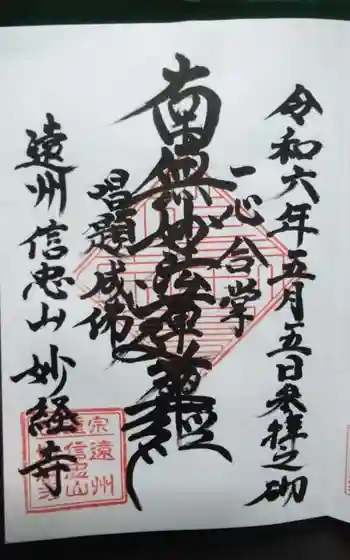 令和六年五月五日参拝之砌
一心合掌
南無妙法蓮華経
唱題成佛
遠州信忠山妙経寺
宗遠州
信忠山